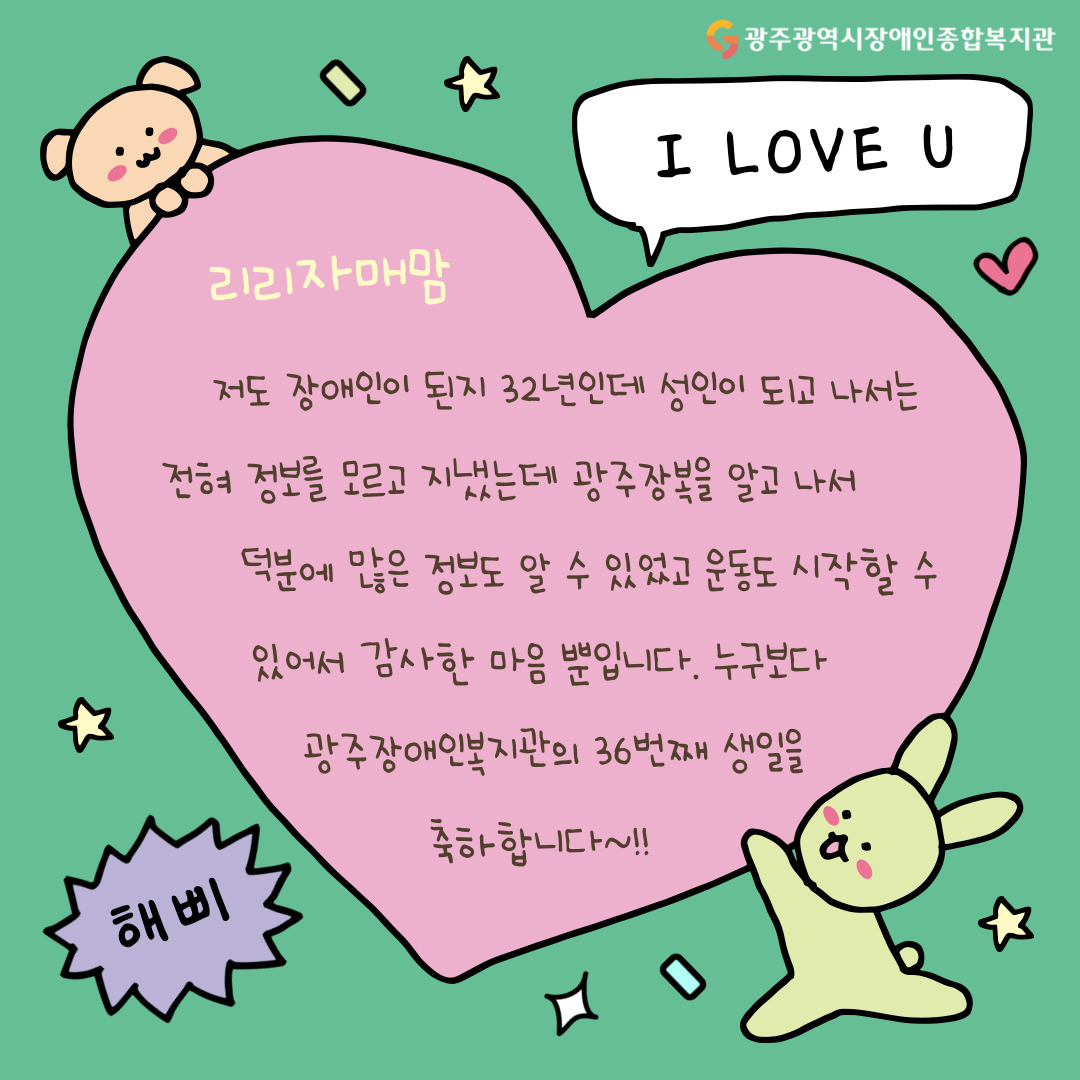 광주광역시장애인종합복지관
I LOVE U
리리자매맘
저도 장애인이 된지 32년인데 성인이 되고 나서는
전혀 정보를 모르고 지냈는데 광주장복을 알고 나서
덕분에 많은 정보도 알 수 있었고 운동도 시작할 수
있어서 감사한 마음 뿐입니다. 누구보다
광주장애인복지관의 36번째 생일을
축하합니다~!!
해삐